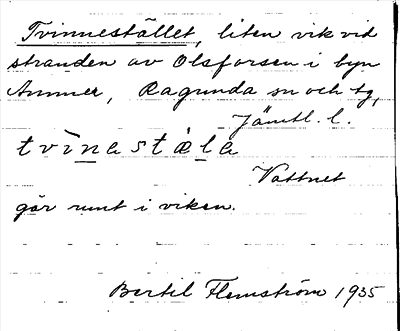 Tvinnestället, liten vik vid
stranden av Olsforsen i byn
Ammer, Ragunda sn och tg,
Jämtl. l.
tvìnastäla
Vattnet
går runt i viken.
Bertil Flemström 1935